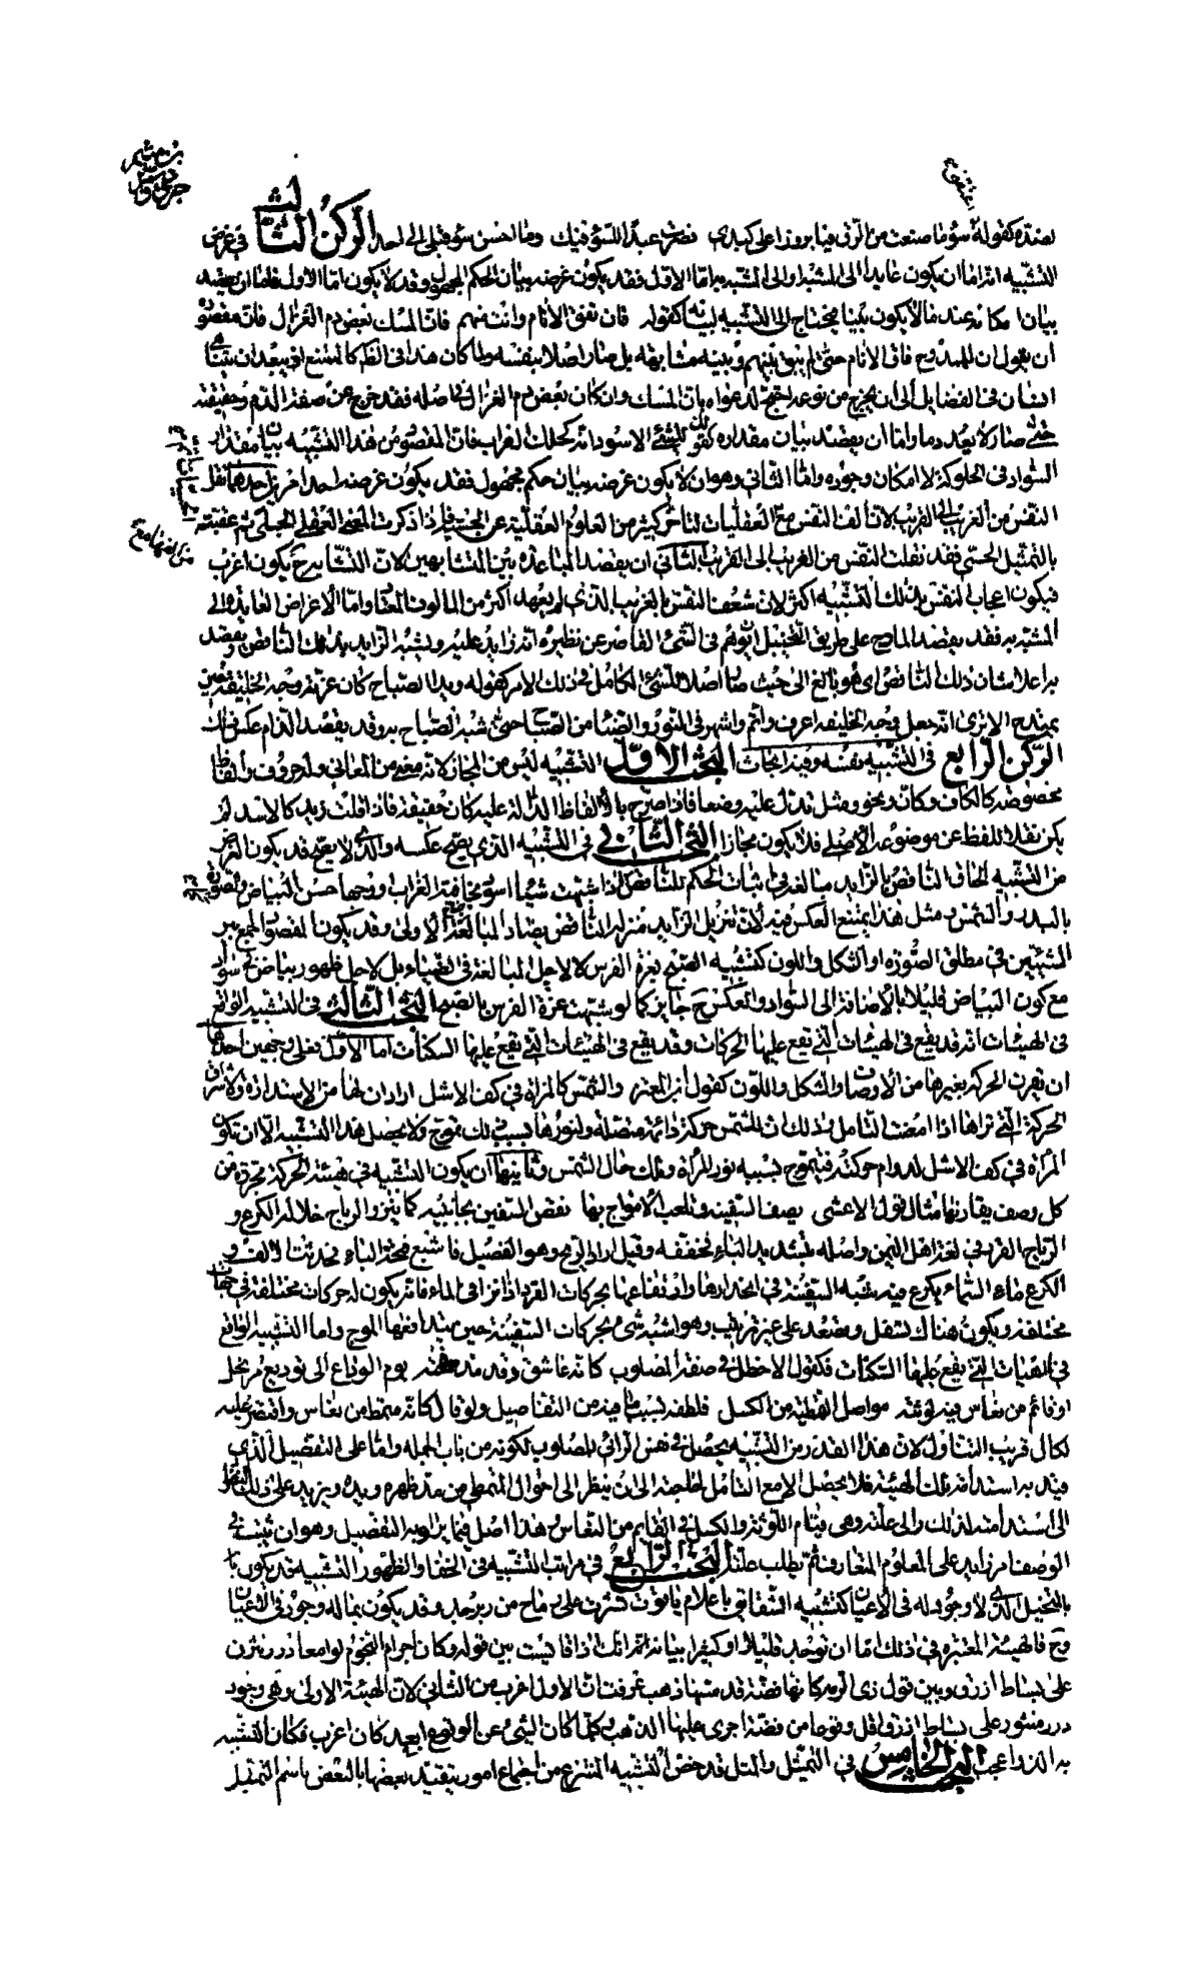 الركن الثالث في غرض
التشبيه انه اما ان يكون عايدا الى المشبه او الى المشبه به اما الاول فقد يكون غرضه بيان الحكم المجهول وقد لا يكون اما الاول فاما ان يقصد
بيان امكانه عند ما لا يكون بينا فيحتاج الى التشبيه لبيانه كقوله فان تفق الانام وانت منهم فان المسك بعض دم الغزال فان مقصوده
ان يقول ان الممدوح فاق الانام حتى لم يبق بينهم وبينه مشابهة بل صار اصلا بنفسه ولما كان هذا في الظاهر كالممتنع اذ يبعد ان يتناهى
انسان في الفضايل الى ان يخرج من نوعه احتج لدعواه بان المسك وان كان بعض دم الغزال في اصله فقد خرج عن صفة الدم وحقيقته
حتى صار لا يعد دما واما ان يقصد بيان مقداره كقولك للشيء الاسود انه كحلك الغراب فان المقصود من هذا التشبيه بيان مقدار
السواد في الحلوكة لا امكان وجوده واما الثاني وهو ان لا يكون غرضه بيان حكم مجهول فقد يكون غرضه احد امرين احدهما نقل
النفس من الغريب الى القريب لان الف النفس مع العقليات لتاخر كثير من العلوم العقلية عن الحسية فاذا ذكرت المعنى العقلي الجلي ثم عقبته
بالتمثيل الحسي فقد نقلت النفس من الغريب الى القريب الثاني ان يقصد المباعدة بين المتشابهين لان التشابه ح يكون اغرب
فيكون اعجاب النفس بذلك التشبيه اكثر لان شعف النفس بالغريب الذي لم يعهد اكثر من المالوف المعتاد واما الاغراض العايدة الى
المشبه به فقد يقصد المادح على طريق التخييل ان يوهم في الشيء القاصر عن نظيره انه زايد عليه ويشبه الزايد بذلك الناقص ويقصد
به اعلا شان ذلك الناقص اي هو بالغ الى حيث صار اصلا للشيء الكامل في ذلك الامر كقوله وبدا الصباح كان غرته وجه الخليفة حين
يمتدح الا ترى انه جعل وجه الخليفة اعرف واتم واشهر في النور والضياء من الصباح حتى شبه الصباح به وقد يقصد الذام عكس ذلك
الركن الرابع في التشبيه نفسه وفيه ابحاث البحث الاول التشبيه ليس من المجاز لانه معنى من المعاني وله حروف والفاظ
مخصوصة كالكاف وكان ونحو ومثل تدل عليه وضعا فاذا صرح بالالفاظ الدالة عليه كان حقيقة فاذا قلت زيد كالاسد لم
يكن نقلا للفظ عن موضوعه الاصلي فلا يكون مجازا البحث الثاني في التشبيه الذي يصح عكسه والذي لا يصح قد يكون الغرض
من التشبيه الحاق الناقص بالزايد مبالغة في اثبات الحكم للناقص كما اذا شبهت شيئا اسود بخافية الغراب او وجها حسن البياض والصورة
بالبدر والشمس ومثل هذا يمتنع العكس فيه لان تنزيل الزايد منزلة الناقص يضاد المبالغة الاولى وقد يكون المقصود الجمع بين
الشيئين في مطلق الصورة او الشكل واللون كتشبيه الصبح بغرة الفرس لا لاجل المبالغة في الضياء بل لاجل ظهور بياض في سواد
مع كون البياض قليلا بالاضافة الى السواد والعكس ح جايز كما لو شبهت غرة الفرس بالصبح البحث الثالث في التشبيه الواقع
في الهيئات انه قد يقع في الهيئات التي تقع عليها الحركات وقد يقع في الهيئات التي تقع عليها السكنات اما الاول فعلى وجهين احدهما
ان تقرن الحركة بغيرها من الاوصاف والشكل واللون كقول ابن المعتز والشمس كالمراة في كف الاشل اراد ان لها من الاستدارة والاشراق
الحركة التي تراها اذا امعنت التامل وذلك ان للشمس حركة دائمة متصلة ولنورها بسبب ذلك تموج ولا يحصل هذا التشبيه الا ان تكون
المراة في كف الاشل لدوام حركته فيتموج بسببه نور المراة وتلك حال الشمس وثانيها ان يكون التشبيه في هيئة الحركة مجردة من
كل وصف يقارنها مثال قول الاعشى يصف السفينة وتلعب الامواج بها تقص السفين بجانبيه كما ينزو الرباح خلا له الكرع و
الرباح القرد في لغة اهل اليمن واصله بتشديد الباء فخففه وقيل اراد الربح وهو الفصيل فاشبع فتحة الباء فحدثت الالف و
الكرع ماء السماء يكرع فيه شبه السفينة في انحدارها وارتفاعها بحركات القرد اذا نزا في الماء فانه يكون له حركات مختلفة في جهات
مختلفة ويكون هناك تسفل وتصعد على غير ترتيب وهو اشبه شيء بحركات السفينة حين يتدافعها الموج واما التشبيه الواقع
في الهيات التي يقع عليها السكنات فكقول الاخطل في صفة المصلوب كانه عاشق وقد مد صفحته يوم الوداع الى توديع مرتحل
او قائم من نعاس فيه لوثته مواصل لتمطيه من الكسل فلطفه بسبب ما فيه من التفاصيل ولو قال كانه متمط من نعاس واقتصر عليه
لكان قريب التناول لان هذا القدر من التشبيه يحصل في نفس الرائي للمصلوب لكونه من باب الجملة واما على التفصيل الذي
فيه به استدامة تلك الهيئة فلا يحصل الا مع التامل لحاجته الى ان ينظر الى احوال المتمطي من مد ظهره ويده ويزيد على ذلك النظر
الى استدامته لذلك والى علته وهي قيام اللوثة والكسل في القايم من النعاس هذا اصل فيما يراد به التفصيل وهو ان يثبت في
الوصف امر زايد على المعلوم المتعارف ثم يطلب علته البحث الرابع في مراتب التشبيه في الخفاء والظهور التشبيه قد يكون
بالتخيل الذي لا وجود له في الاعيان كتشبيه الشقايق باعلام ياقوت نشرت على رماح من زبرجد وقد يكون بما له وجود في الاعيان
وح فالهيئة المعتبرة في ذلك اما ان توجد قليلا او كثيرا بيانه انك اذا قايست بين قوله وكان اجرام النجوم لوامعا درر نثرن
على بساط ازرق وبين قول ذي الرمة كانها فضة قد مسها ذهب عرفت ان الاول اغرب من الثاني لان الهيئة الاولى وهي وجود
درر منثور على بساط ازرق اقل وقوعا من فضة اجرى عليها الذهب وكلما كان الشيء عن الوقوع ابعد كان اغرب فكان التشبيه
به الذ واعجب البحث الخامس في التمثيل والمثل قد خص التشبيه المنتزع من اجتماع امور يتقيد بعضها بالبعض باسم التمثيل